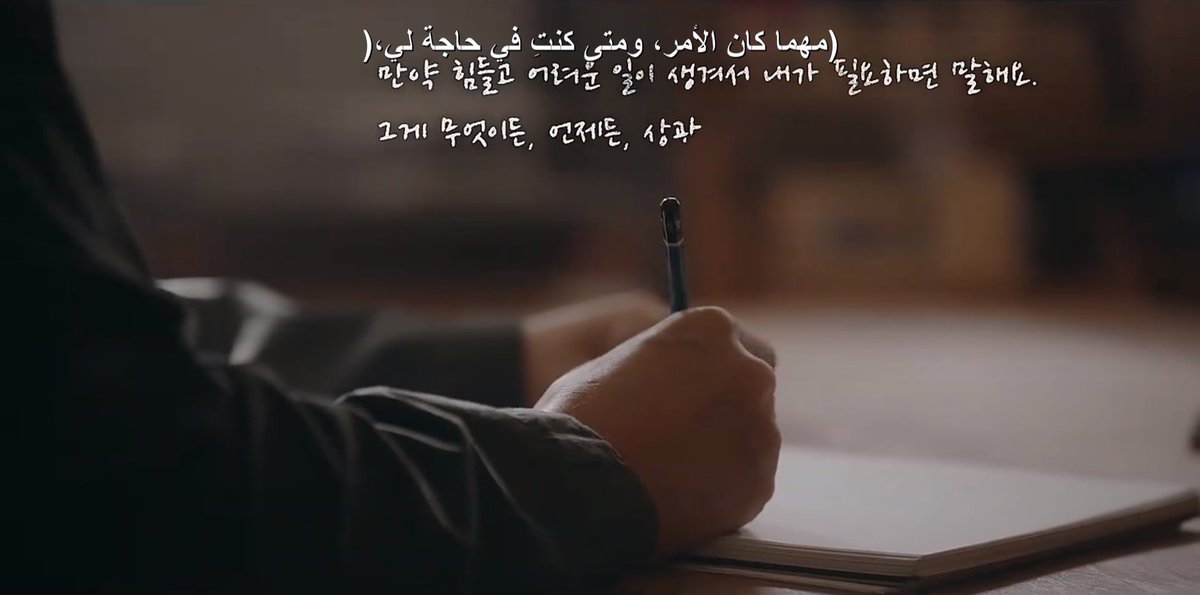 (مهما كان الأمر، ومتى كنتِ في حاجة لي،)
만약 힘들고 어려운 일이 생겨서 내가 필요하면 말해요.
그게 무엇이든, 언제든, 상관